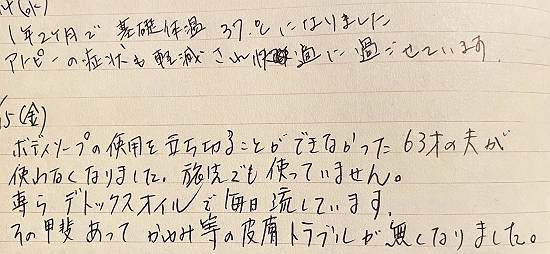 (水)
1年2ヶ月で 基礎体温 37.℃になりました
アトピーの症状も軽減され 快適に過ごせています.
5(金)
ボディソープの使用を立ち切ることができなかった 63才の夫が
使わなくなりました。旅先でも使っていません。
専らデトックスオイルで毎日流しています.
その甲斐あって かゆみ等の皮膚トラブルが無くなりました。